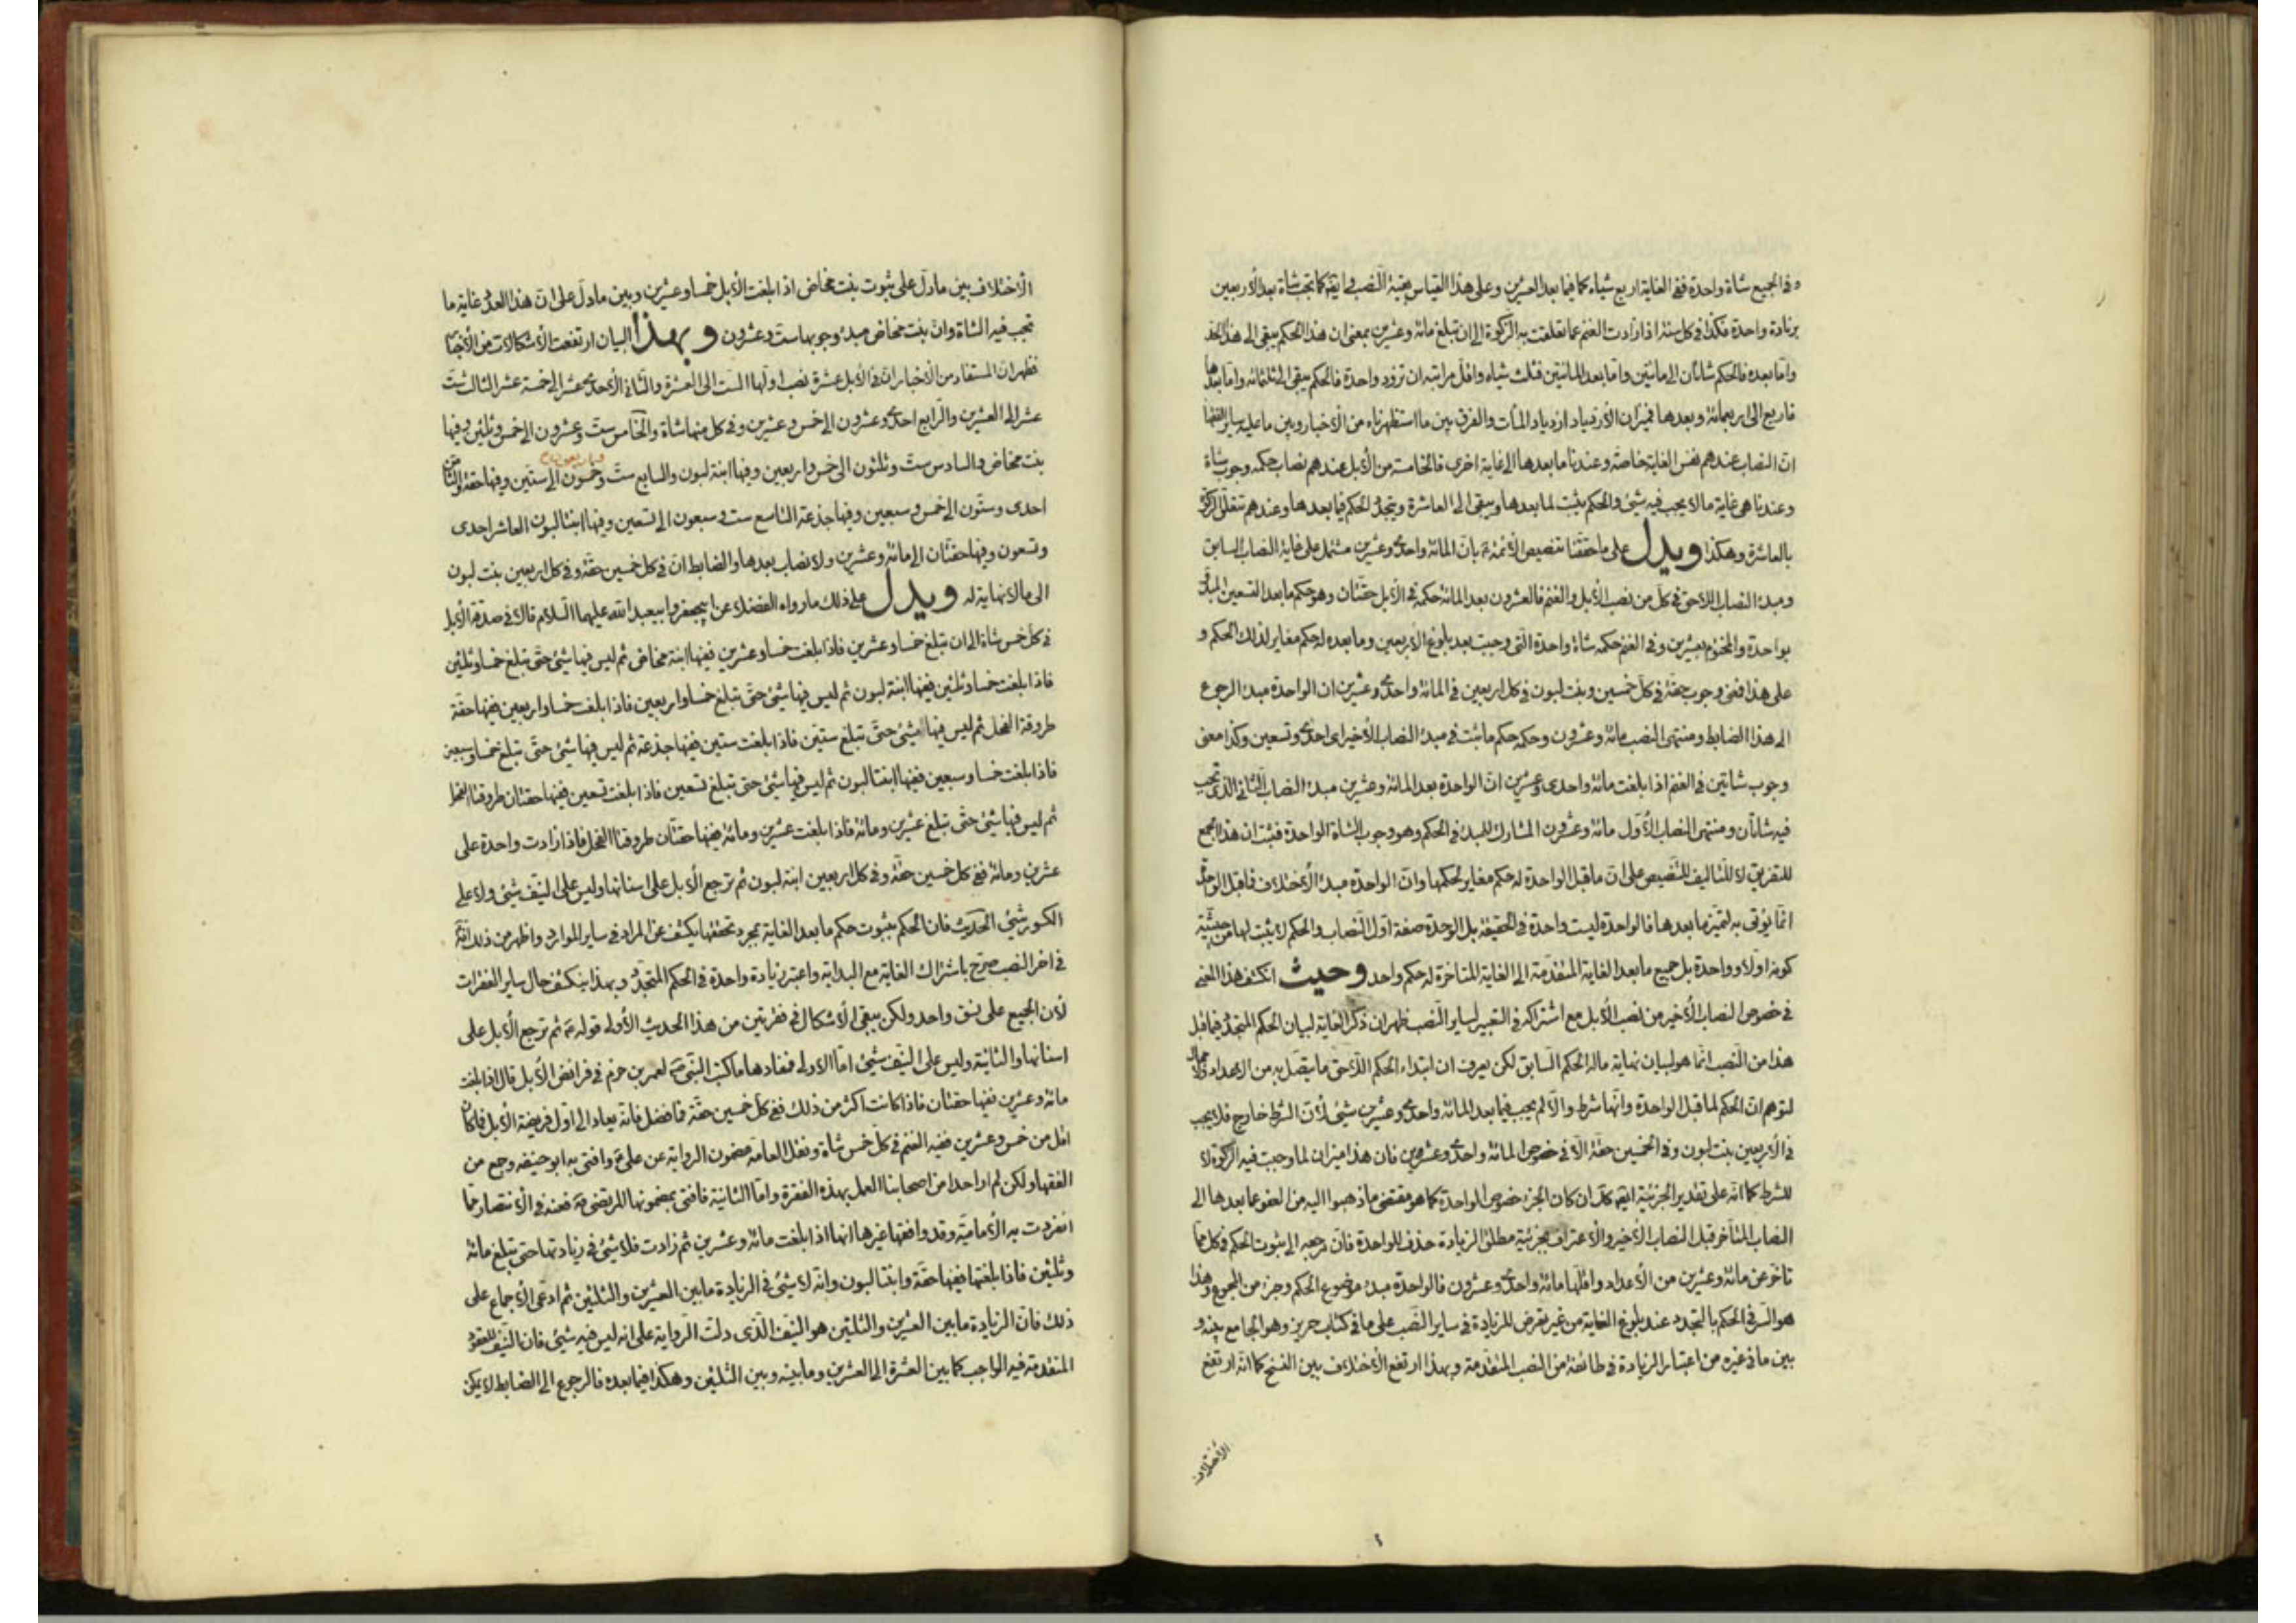 وفي الجميع شاة واحدة ففي الغاية اربع شياه كما فيما بعد العشرين وعلى هذا القياس بقية النصب في ايقة كما تجب شاة بعد الأربعين
بزيادة واحدة فكذا في كل سنة اذا زادت الغنم عما تعلقت به الزكوة الى ان تبلغ مائة وعشرين بمعنى ان هذا الحكم يبقى الى هذا الحد
واما بعده فالحكم شاتان الى مائتين واما بعد المائتين فثلث شياه واقل مراتبه ان تزود واحدة فالحكم يبقى الى ثلثمائه واما بعدها
فاربع الى اربعمائة وبعدها فميزان الأزدياد ازدياد المآت والفرق بين ما استظهرناه من الأخبار وبين ما عليه ساير الفقهاء
ان النصاب عندهم نفس الغاية خاصة وعندنا ما بعدها الى غاية اخرى فالخامسة من الأبل عندهم نصاب حكمه وجوب شاة
وعندنا هي غاية مالا يجب فيه شيئ والحكم يثبت لما بعدها ويبقى الى العاشرة ويتجدد الحكم فيما بعدها وعندهم تتعلق الزكوة
بالعاشرة وهكذا ويدل على ما حققنا تنصيص الأئمة ع بان المائة واحدى وعشرين مشتمل على غاية النصاب السابق
ومبدء النصاب اللاحق في كل من نصب الأبل والغنم فالعشرون بعد المائة حكمه في الأبل حقتان وهو حكم ما بعد التسعين المبدو
بواحدة والمختوم بعشرين وفي الغنم حكمه شاة واحدة التي وجبت بعد بلوغ الأربعين وما بعده له حكم مغاير لذلك الحكم و
على هذا فمعنى وجوب حقة في كل خمسين وبنت لبون في كل اربعين في المائة واحدى وعشرين ان الواحدة مبدء الرجوع
الى هذا الضابط ومنتهى النصب مائة وعشرون وحكمه حكم ما ثبت في مبدء النصاب الأخير اى احدى وتسعين وكذا معنى
وجوب شاتين في الغنم اذا بلغت مائة واحدى وعشرين ان الواحدة بعد المائة وعشرين مبدء النصاب الثاني الذى تجب
فيه شاتان ومنتهى النصاب الأول مائة وعشرون المشارك للمبدء في الحكم وهو وجوب الشاة الواحدة فثبت ان هذا الجمع
للتفريق لا للتاليف للتنصيص على ان ما قبل الواحدة له حكم مغاير لحكمها وان الواحدة مبدء الأختلاف فما قبل الواحدة
انما يؤتى به لتميز ما بعدها فالواحدة ليست واحدة في الحقيقة بل الوحدة صفة اول النصاب والحكم لا يثبت لها من حيثية
كونه اولا وواحدة بل جميع ما بعد الغاية المتقدمة الى الغاية المتاخرة له حكم واحد وحيث انكشف هذا المعنى
في خصوص النصاب الأخير من نصب الأبل مع اشتراكه في التعبير لساير النصب ظهر ان ذكر الغاية لبيان الحكم المتجدد فيما قبل
هذا من النصب انما هو لبيان نهاية ماله الحكم السابق لكن يعرف ان ابتداء الحكم اللاحق ما يتصل به من الاعداد والا
لتوهم ان الحكم لما قبل الواحدة وانها شرط والا لم يجب فيما بعد المائة واحدى وعشرين شيئ لأن الشرط خارج فلا يجب
في الأربعين بنت لبون وفي الخمسين حقة الا في خصوص المائة واحدى وعشرين فان هذا ميزان لما وجبت فيه الزكوة لا
للشرط كما انه على تقدير الجزئية ايضا كك ان كان الجزء خصوص الواحدة كما هو مقتضى ما ذهبوا اليه من العفو عما بعدها الى
النصاب المتأخر قبل النصاب الأخير والاعتراف بجزئية مطلق الزيادة حذف للواحدة فان مرجعه الى ثبوت الحكم في كل ما
تاخر عن مائة وعشرين من الأعداد واقلها مائة واحدى وعشرون فالواحدة مبدء موضوع الحكم وجزء من المجموع وهذا
هو السر في الحكم بالتجدد عند بلوغ الغاية من غير تعرض للزيادة في ساير النصب على ما في كتاب حريز وهو الجامع بينه و
بين ما في غيره من اعتبار الزيادة في طائفة من النصب المتقدمة وبهذا ارتفع الأختلاف بين النسخ كما انه ارتفع
الأختلاف
الأختلاف بين ما دل على ثبوت بنت مخاض اذا بلغت الأبل خمسا وعشرين وبين ما دل على ان هذا العدد غاية ما
تجب فيه الشاة وان بنت مخاض مبدء وجوبها ست وعشرون وبهذا البيان ارتفعت الأشكالات من الأخبار
فظهر ان المستفاد من الأخبار ان في الأبل عشرة نصب اولها الست الى العشرة والثاني الأحد عشر الى خمسة عشر الثالث ست
عشر الى العشرين والرابع احدى وعشرون الى خمس وعشرين وفي كل منها شاة والخامس ست وعشرون الى خمس وثلثين وفيها
بنت مخاض والسادس ست وثلثون الى خمس واربعين وفيها ابنة لبون والسابع ست وخمسون الى ستين وفيها حقة والثامن
احدى وستون الى خمس وسبعين وفيها جذعة التاسع ست وسبعون الى تسعين وفيها ابنتا لبون العاشر احدى
وتسعون وفيها حقتان الى مائة وعشرين ولا نصاب بعدها والضابط ان في كل خمسين حقة وفي كل اربعين بنت لبون
الى مالا نهاية له ويدل على ذلك ما رواه الفضلاء عن ابيجعفر وابيعبد الله عليهما السلام قالا في صدقة الأبل
في كل خمس شاة الى ان تبلغ خمسا وعشرين فاذا بلغت خمسا وعشرين ففيها ابنة مخاض ثم ليس فيها شيئ حتى تبلغ خمسا وثلثين
فاذا بلغت خمسا وثلثين ففيها ابنة لبون ثم ليس فيها شيئ حتى تبلغ خمسا واربعين فاذا بلغت خمسا واربعين ففيها حقة
طروقة الفحل ثم ليس فيها شيئ حتى تبلغ ستين فاذا بلغت ستين ففيها جذعة ثم ليس فيها شيئ حتى تبلغ خمسا وسبعين
فاذا بلغت خمسا وسبعين ففيها ابنتا لبون ثم ليس فيها شيئ حتى تبلغ تسعين فاذا بلغت تسعين ففيها حقتان طروقتا الفحل
ثم ليس فيها شيئ حتى تبلغ عشرين ومائة فاذا بلغت عشرين ومائة ففيها حقتان طروقتا الفحل فاذا زادت واحدة على
عشرين ومائة ففي كل خمسين حقة وفي كل اربعين ابنة لبون ثم ترجع الأبل على اسنانها وليس على النيف شيئ ولا على
الكسور شيئ الحديث فان الحكم بثبوت حكم ما بعد الغاية بمجرد تحققها يكشف عن المراد في ساير الموارد واظهر من ذلك انه
في اخر النصب صرح باشتراك الغاية مع البداية واعتبر زيادة واحدة في الحكم المتجدد وبهذا ينكشف حال ساير الفقرات
لأن الجميع على نسق واحد ولكن يبقى الأشكال في فقرتين من هذا الحديث الأولى قوله ع ثم ترجع الأبل على
اسنانها والثانية وليس على النيف شيئ اما الاولى فمفادها ما كتب النبي ص لعمر بن حزم في فرائض الأبل قال اذا بلغت
مائة وعشرين ففيها حقتان فاذا كانت اكثر من ذلك ففي كل خمسين حقة فما فضل فانه يعاد الى اول فريضة الأبل فما كان
اقل من خمس وعشرين ففيه الغنم في كل خمس شاة ونقل العامة مضمون الرواية عن على ع وافتى به ابو حنيفة وجمع من
الفقهاء ولكن لم ار احدا من اصحابنا العمل بهذه الفقرة واما الثانية فافتى بمضمونها المرتضى ره فعنه في الأنتصار مما
انفردت به الأمامية وقد وافقها غيرها انها اذا بلغت مائة وعشرين ثم زادت فلا شيئ في زيادتها حتى تبلغ مائة
وثلثين فاذا بلغتها ففيها حقة وابنتا لبون وانه لا شيئ في الزيادة ما بين العشرين والثلثين ثم ادعى الأجماع على
ذلك فان الزيادة ما بين العشرين والثلثين هو النيف الذى دلت الرواية على انه ليس فيه شيئ فان النيف للعقود
المتقدمة فيه الواجب كما بين العشرة الى العشرين وما بينه وبين الثلثين وهكذا فيما بعده فالرجوع الى الضابط لا يمكن